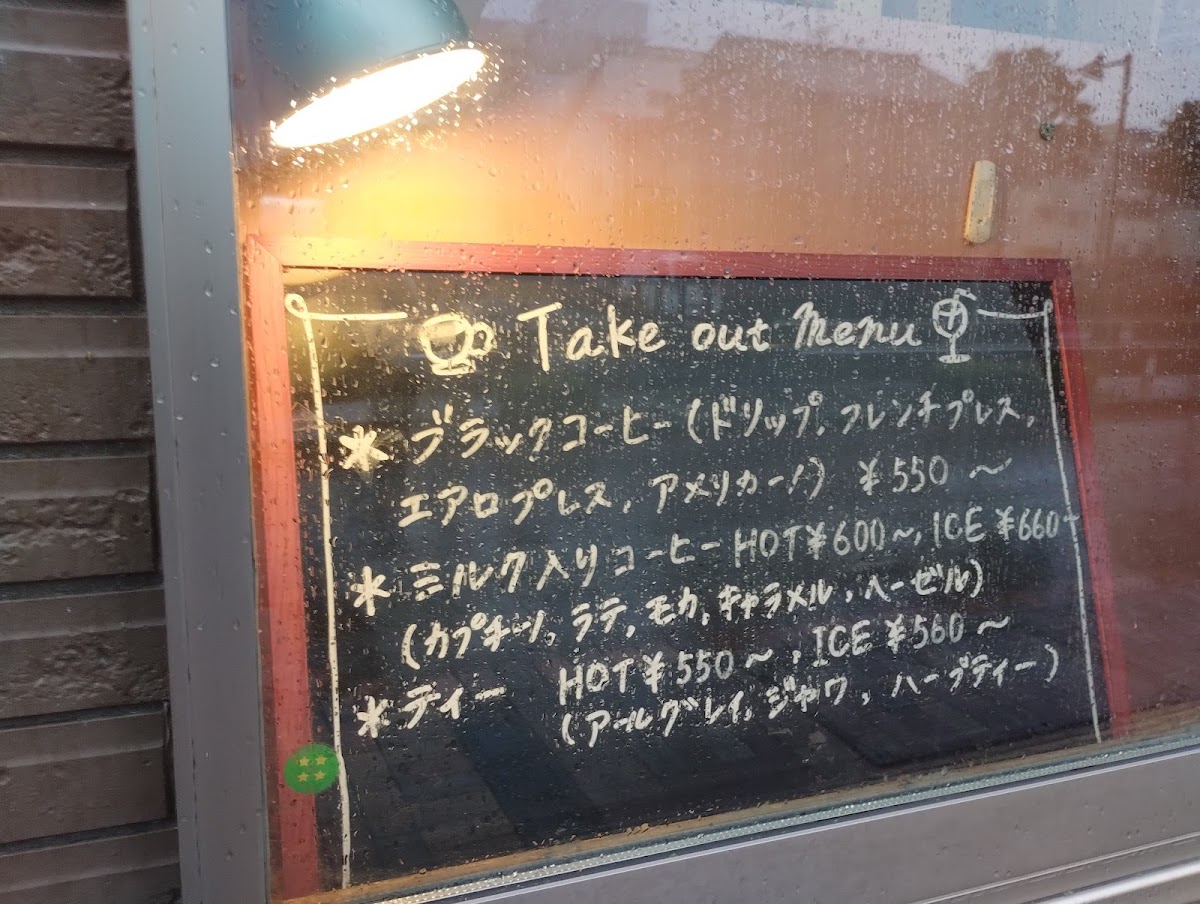 Take out Menu
* ブラックコーヒー (ドリップ, フレンチプレス,
エアロプレス, アメリカーノ) ¥550 〜
* ミルク入りコーヒー HOT¥600〜, ICE ¥660
(カプチーノ, ラテ, モカ, キャラメル, ヘーゼル)
* ティー HOT¥550〜, ICE ¥560〜
(アールグレイ, ジャワ, ハーブティー)